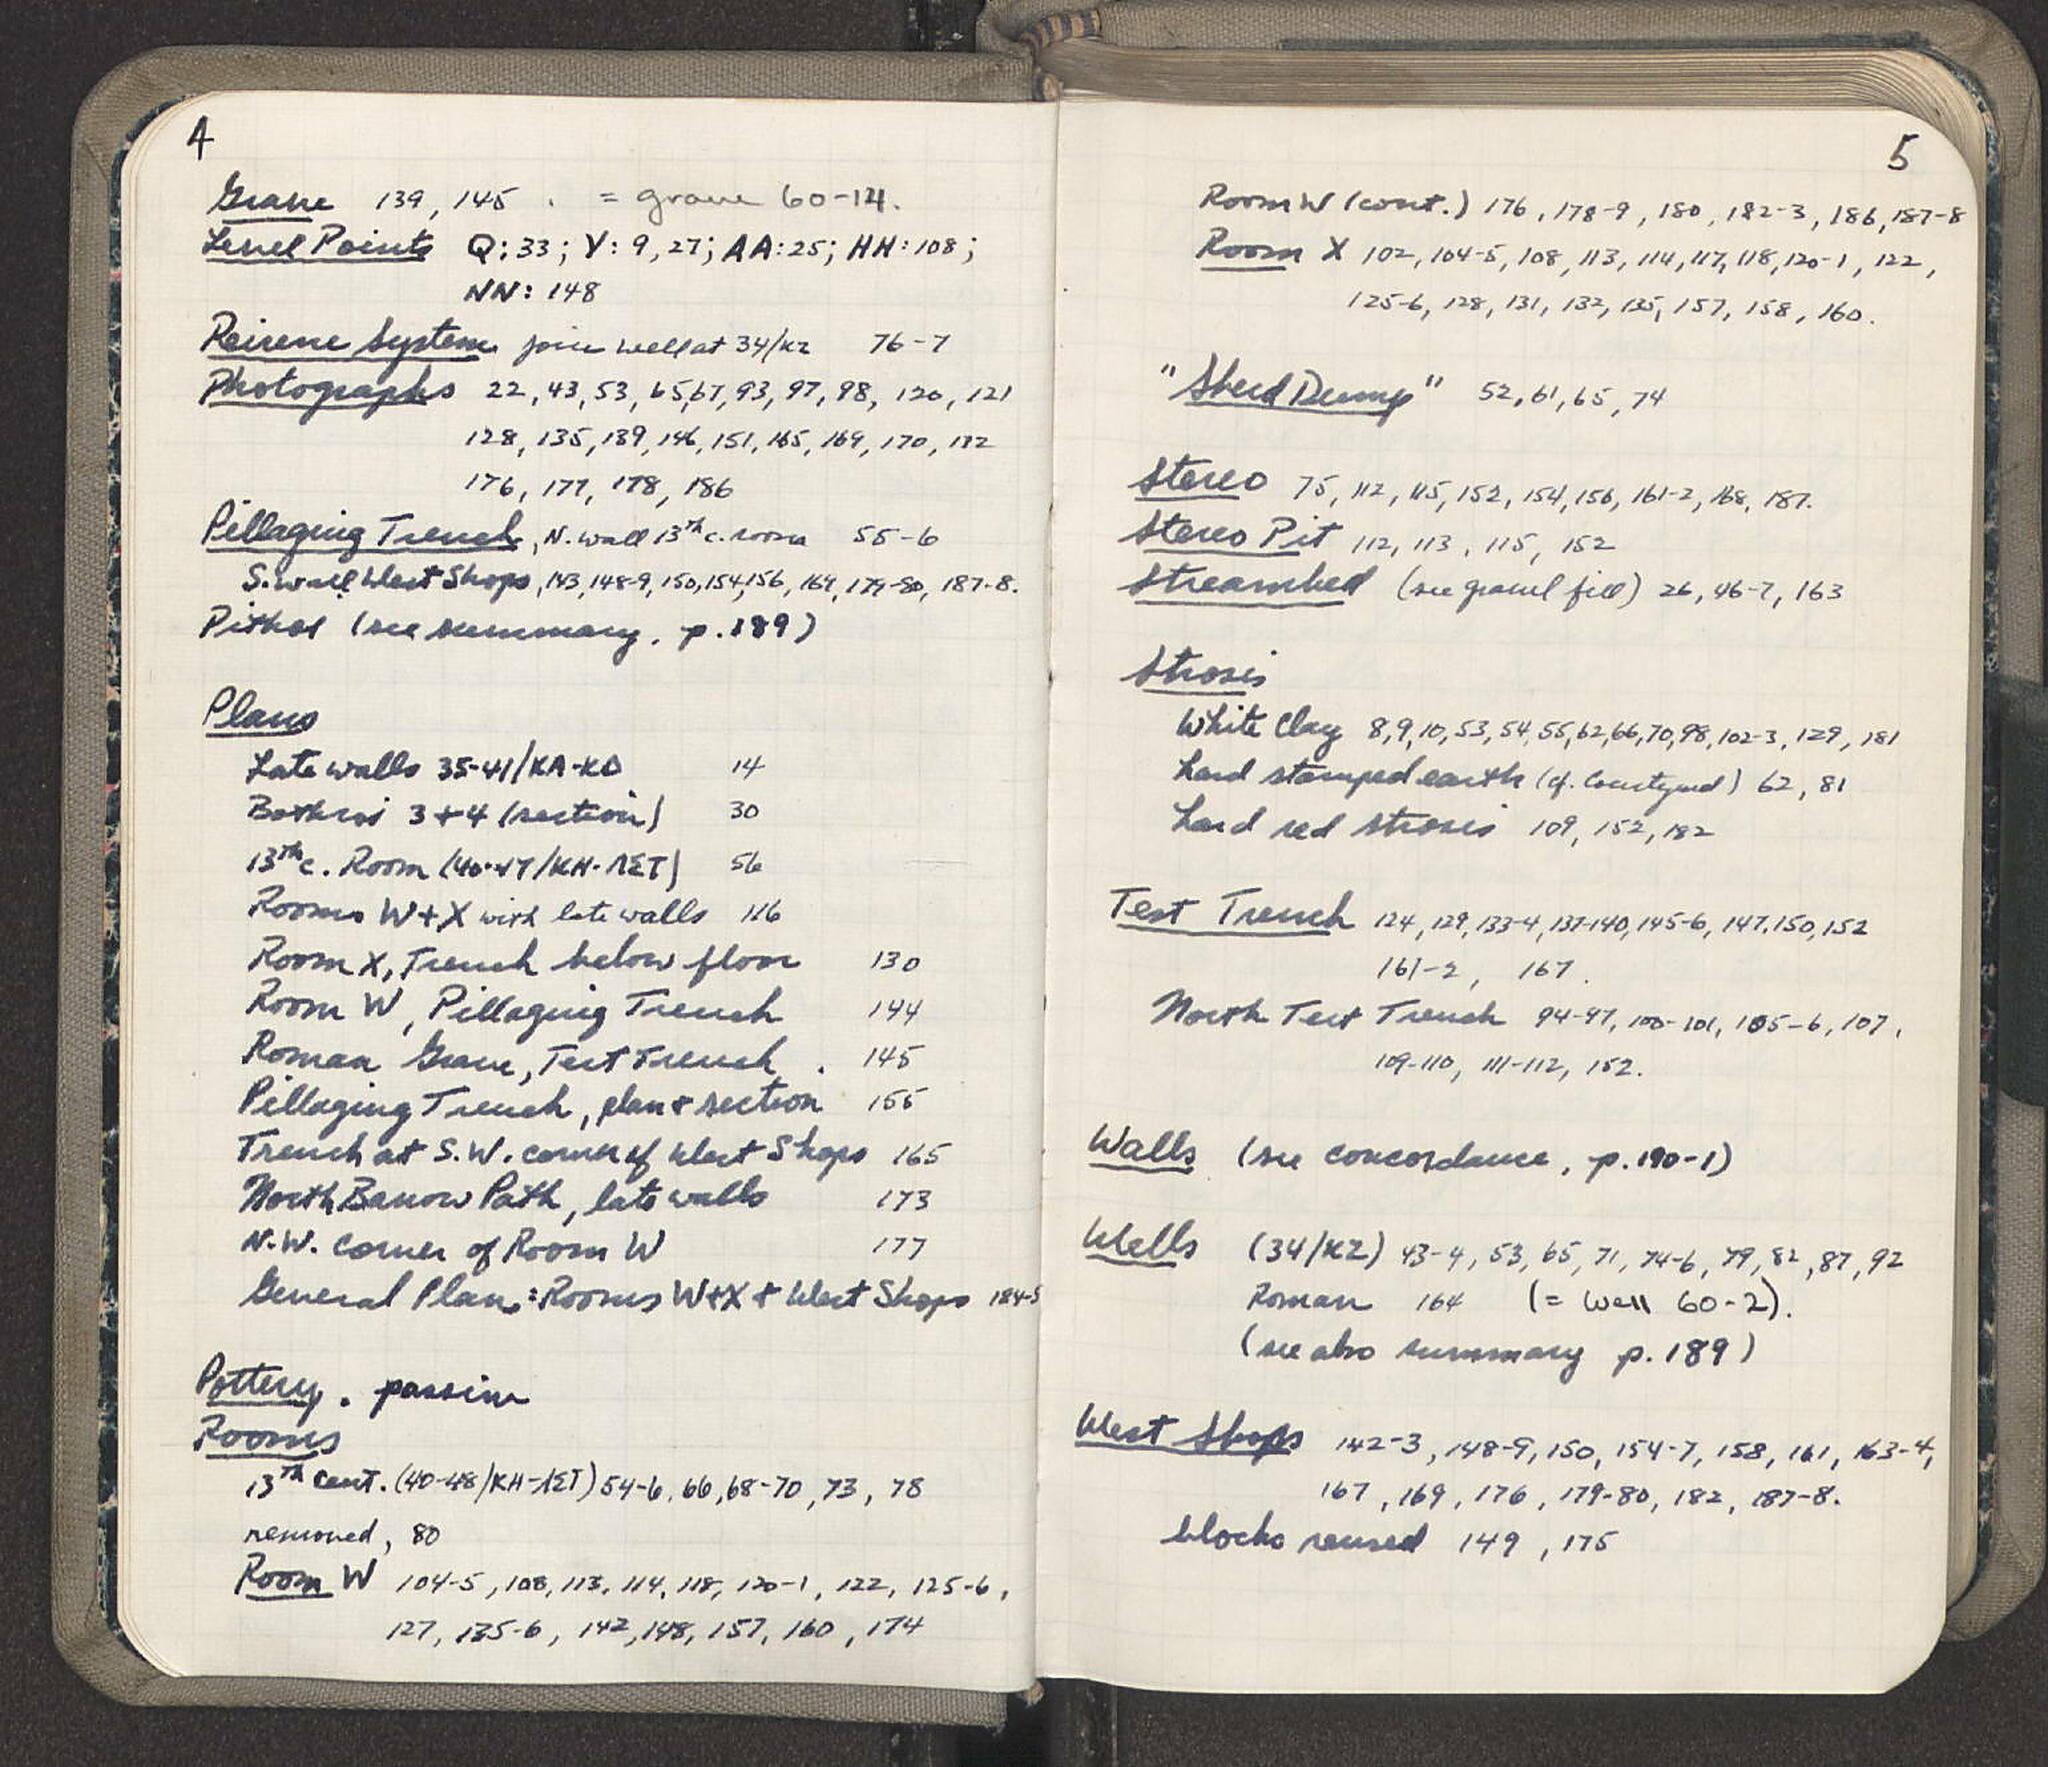 4
Grave 139, 145 . = grave 60-14.
Level Points Q: 33; V: 9, 27; AA: 25; HH: 108;
NN: 148
Peirene System join well at 34/KZ 76-7
Photographs 22, 43, 53, 65, 67, 93, 97, 98, 120, 121
128, 135, 139, 146, 151, 165, 169, 170, 172
176, 177, 178, 186
Pillaging Trench, N. wall 13th c. room 55-6
S. wall West Shops, 143, 148-9, 150, 154, 156, 169, 179-80, 187-8.
Pithoi (see summary, p. 189)
Plans
Late walls 35-41/KA-KD 14
Bothroi 3+4 (section) 30
13th c. Room (40-47/KH-ΛΣΤ) 56
Rooms W+X with late walls 116
Room X, Trench below floor 130
Room W, Pillaging Trench 144
Roman Grave, Test Trench . 145
Pillaging Trench, plan + section 155
Trench at S.W. corner of West Shops 165
North Barrow Path, late walls 173
N.W. corner of Room W 177
General Plan: Rooms W+X + West Shops 184-5
Pottery. passim
Rooms
13th cent. (40-48/KH-ΛΣΤ) 54-6, 66, 68-70, 73, 78
removed, 80
Room W 104-5, 108, 113, 114, 118, 120-1, 122, 125-6,
127, 135-6, 142, 148, 157, 160, 174
5
Room W (cont.) 176, 178-9, 180, 182-3, 186, 187-8
Room X 102, 104-5, 108, 113, 114, 117, 118, 120-1, 122,
125-6, 128, 131, 132, 135, 157, 158, 160.
"Sherd Dump" 52, 61, 65, 74
Stereo 75, 112, 115, 152, 154, 156, 161-2, 168, 187.
Stereo Pit 112, 113, 115, 152
Streambed (see gravel fill) 26, 46-7, 163
Strosis
White Clay 8, 9, 10, 53, 54, 55, 62, 66, 70, 98, 102-3, 129, 181
hard stamped earth (cf. Courtyard) 62, 81
hard red strosis 109, 152, 182
Test Trench 124, 129, 133-4, 137-140, 145-6, 147, 150, 152
161-2, 167.
North Test Trench 94-97, 100-101, 105-6, 107,
109-110, 111-112, 152.
Walls (see concordance, p. 190-1)
Wells (34/KZ) 43-4, 53, 65, 71, 74-6, 79, 82, 87, 92
Roman 164 (= well 60-2).
(see also summary p. 189)
West Shops 142-3, 148-9, 150, 154-7, 158, 161, 163-4,
167, 169, 176, 179-80, 182, 187-8.
blocks reused 149, 175